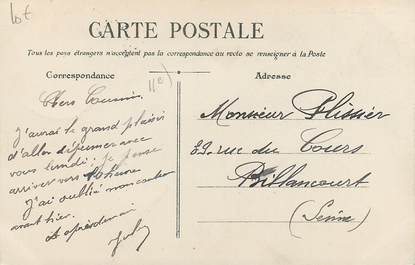 Lot
CARTE POSTALE
Tous les pays étrangers n'acceptent pas la correspondance au recto se renseigner à la Poste
Correspondance
Adresse
Chers Cousins,
J'aurai le grand plaisir
d'aller déjeuner avec
vous lundi je pense
arriver vers
J'ai oublié mon
avant hier.
Monsieur Plissier
rue du Cours
Billancourt
(Seine)